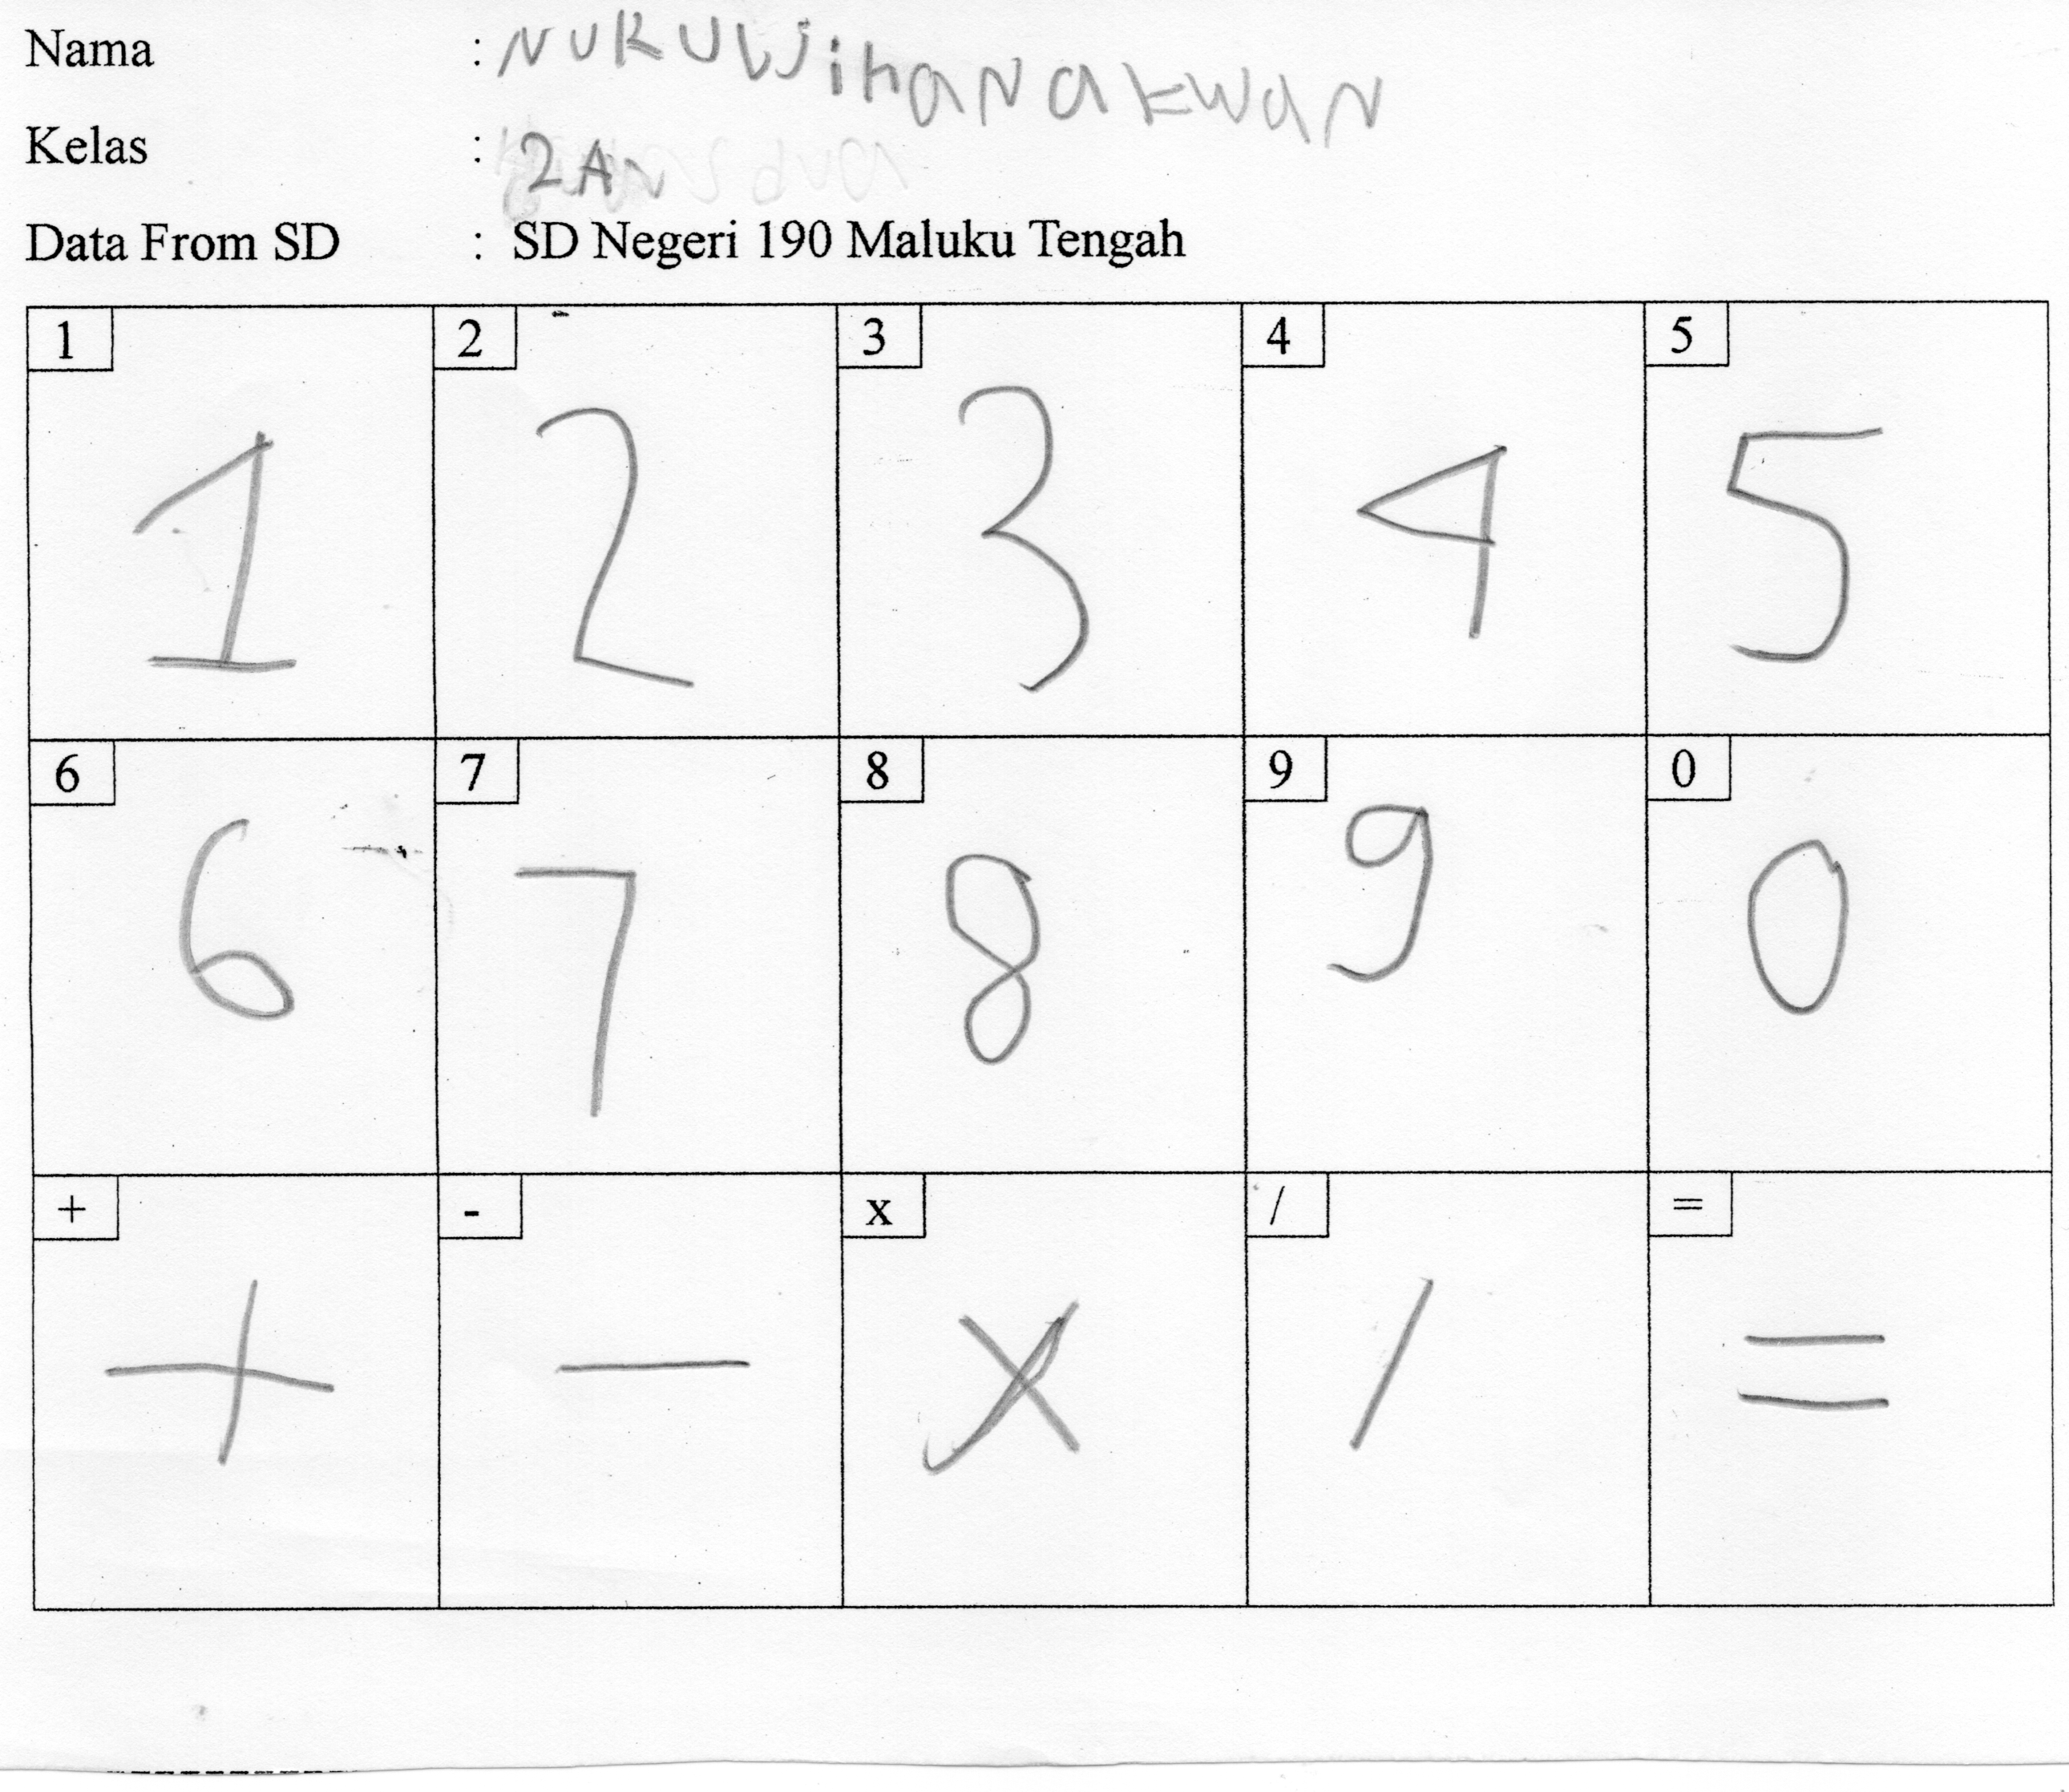 Nama : NUKUWihaNaKWaN
Kelas : 2A
Data From SD : SD Negeri 190 Maluku Tengah
1 2 3 4 5
1 2 3 4 5
6 7 8 9 0
6 7 8 9 0
+ - x / =
+ - x / =